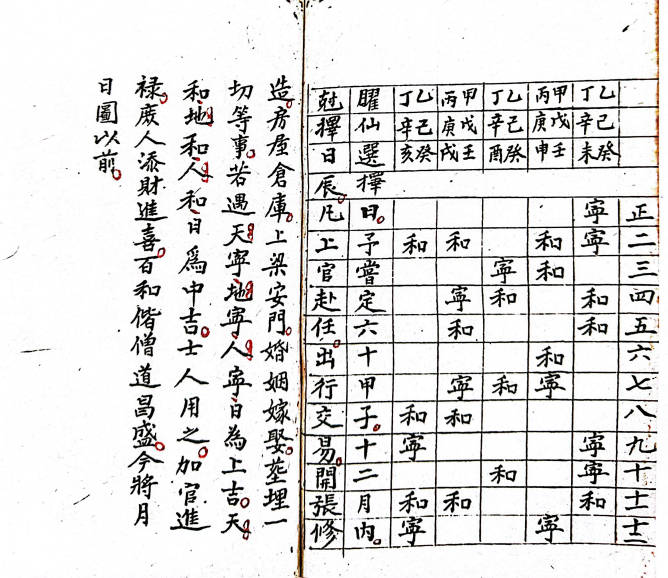 正二三四五六七八九十十一十二
乙己癸
丁辛未
寧寧和和寧寧和
甲戊壬
丙庚申
和和和寧寧
乙己癸
丁辛酉
寧和和和
甲戊壬
丙庚戌
和寧和寧和和
乙己癸
丁辛亥
和和寧和寧
曜仙選擇日。予嘗定六十甲子。十二月内。
尅擇日辰。凡上官赴任。出行交易。開張修
造。房屋倉庫。上梁安門。婚姻嫁娶。塟埋一
切等事。若遇天寧地寧人寧日為上吉。天
和地和人和日爲中吉。士人用之。加官進
禄。庶人添財進喜。百和偕僧道昌盛。今將月
日圖以前。